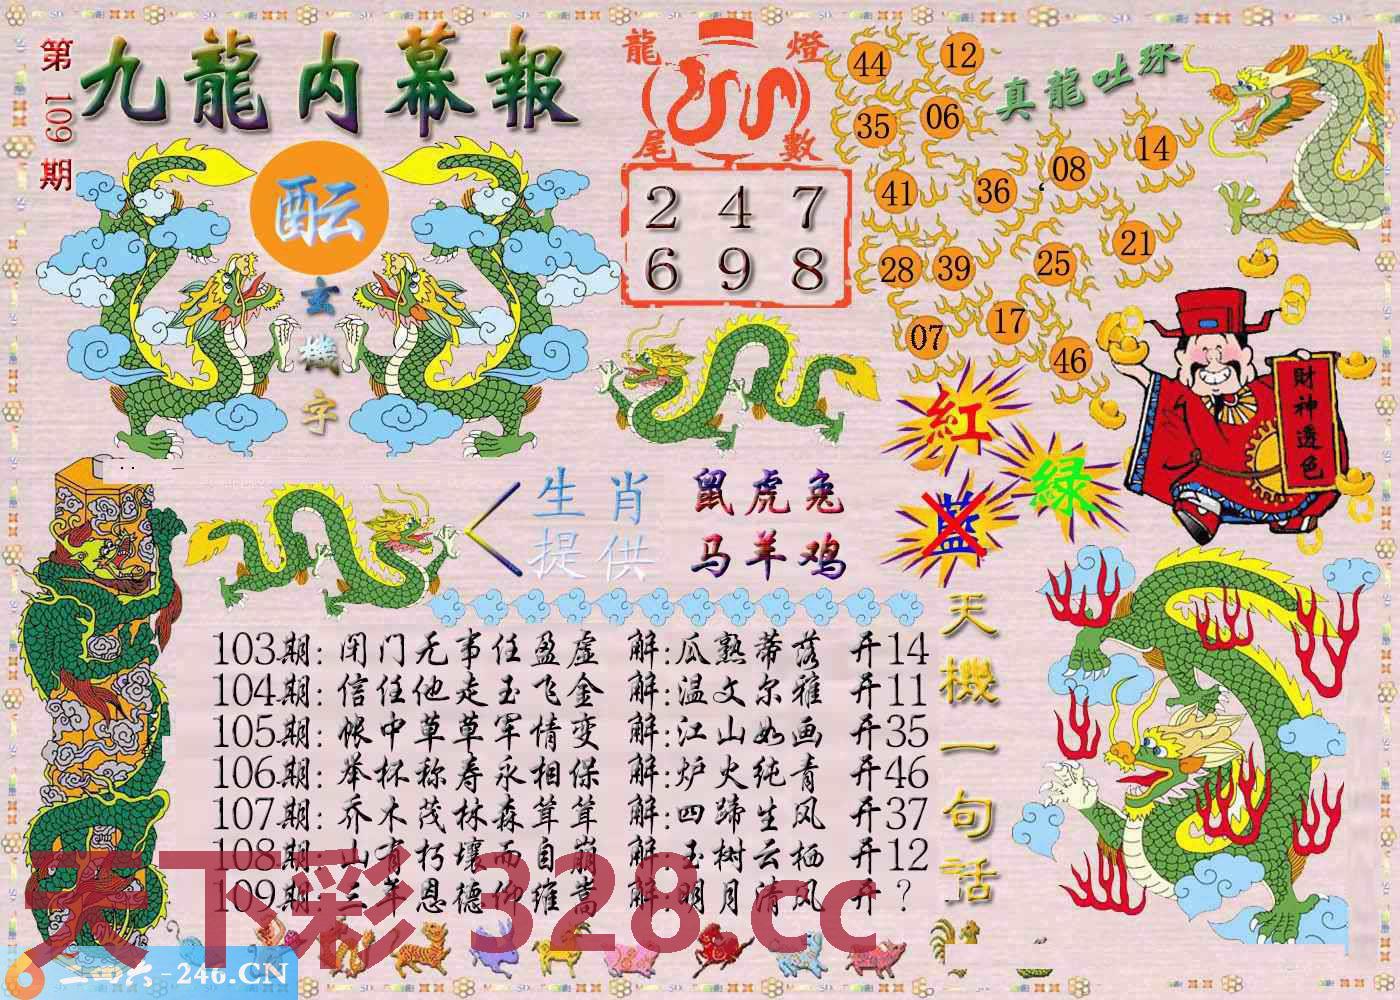 第109期
九龍内幕報
酝
玄機字
龍燈尾數
2 4 7
6 9 8
真龍吐珠
44 12
35 06
41 36 08 14
28 39 25 21
07 17 46
財神透色
紅
绿
藍
生肖提供
鼠虎兔
马羊鸡
天機一句話
103期: 闭门无事任盈虚 解:瓜熟蒂落 开14
104期: 信任他走玉飞金 解:温文尔雅 开11
105期: 帐中草草军情变 解:江山如画 开35
106期: 举杯称寿永相保 解:炉火纯青 开46
107期: 乔木茂林森茸茸 解:四蹄生风 开37
108期: 山有朽壤而自崩 解:玉树云栖 开12
109期: 三年恩德仰维嵩 解:明月清风 开 ?
天下彩 328.cc
二四六-246.CN